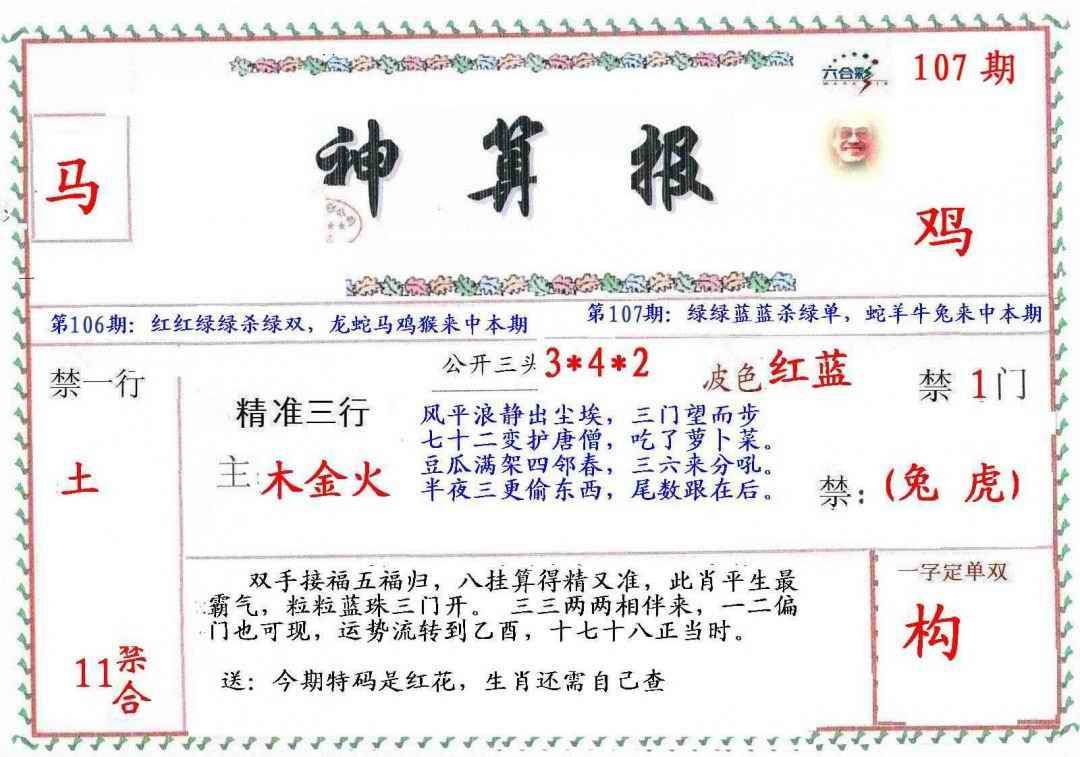 六合彩
107期
神算报
马
鸡
第106期：红红绿绿杀绿双，龙蛇马鸡猴来中本期
第107期：绿绿蓝蓝杀绿单，蛇羊牛兔来中本期
公开三头 3*4*2
波色 红蓝
禁一行
土
禁 1 门
精准三行
主：木金火
风平浪静出尘埃，三门望而步
七十二变护唐僧，吃了萝卜菜。
豆瓜满架四邻春，三六来分吼。
半夜三更偷东西，尾数跟在后。
禁：(兔 虎)
双手接福五福归，八挂算得精又准，此肖平生最
霸气，粒粒蓝珠三门开。 三三两两相伴来，一二偏
门也可现，运势流转到乙酉，十七十八正当时。
送：今期特码是红花，生肖还需自己查
11禁合
一字定单双
构